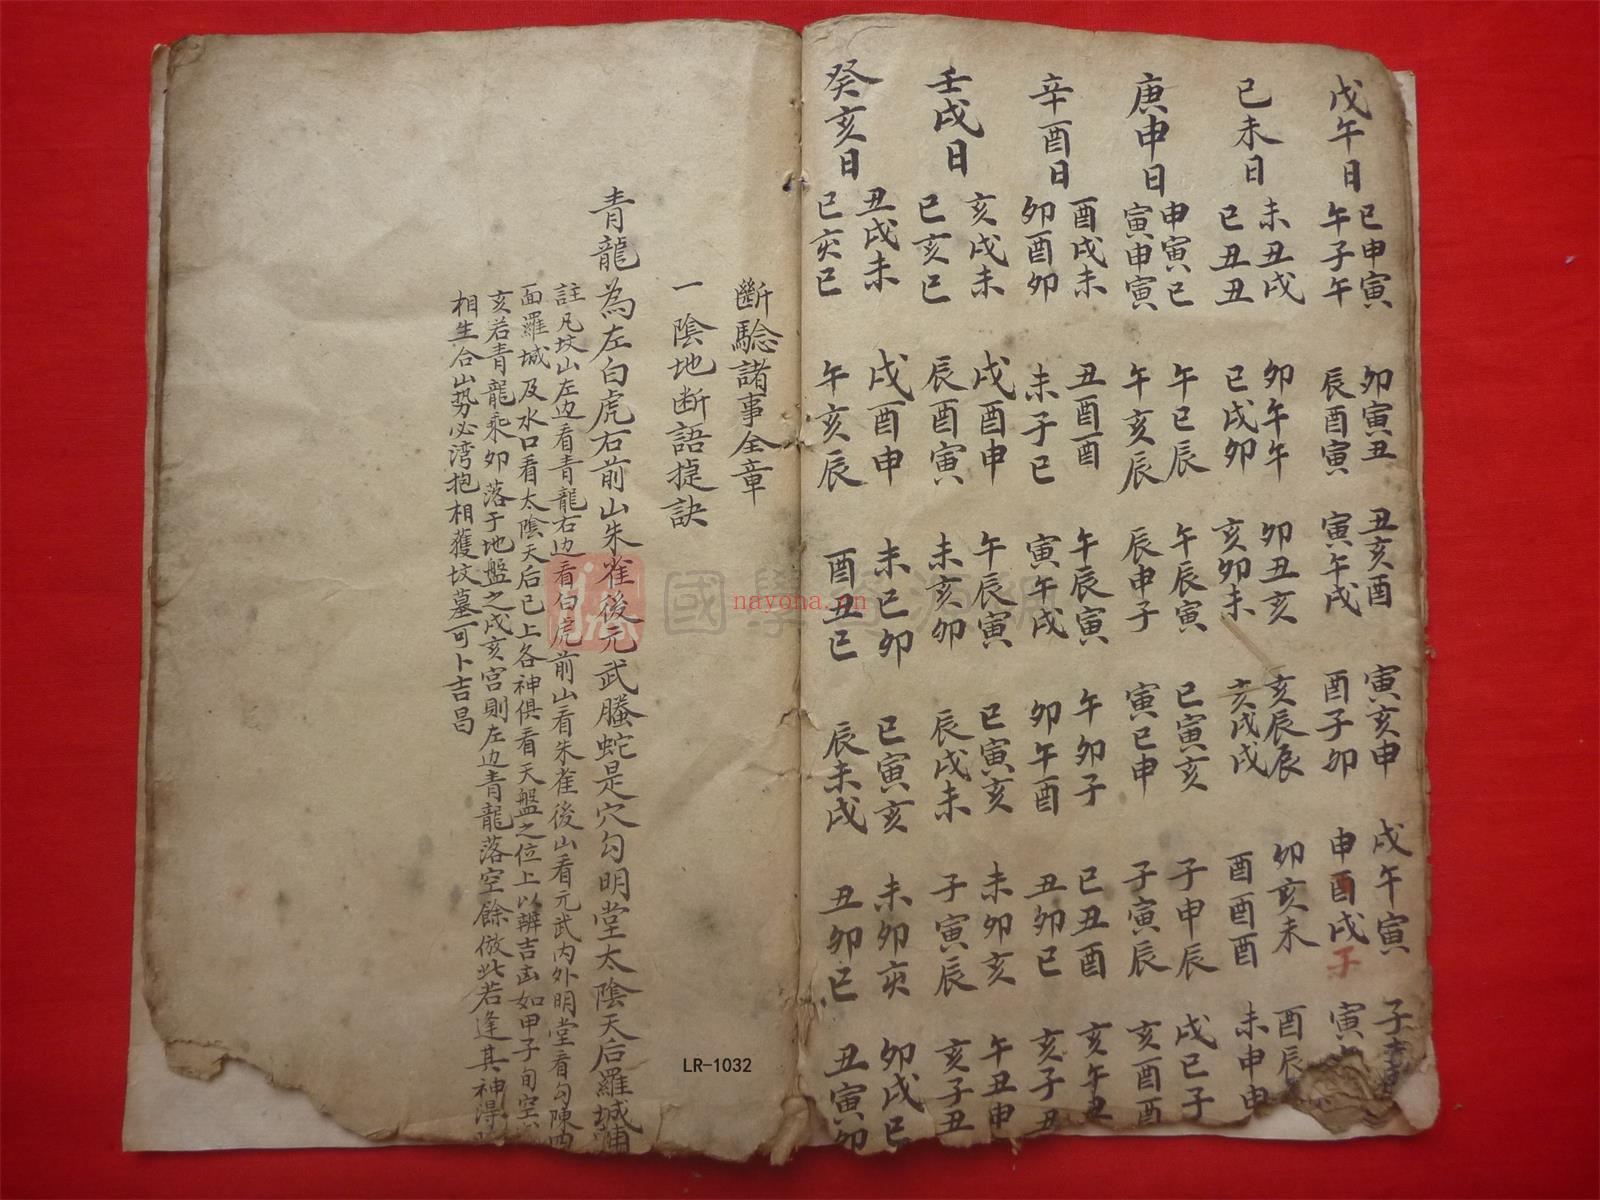 戊午日
巳申寅 卯寅丑 丑亥酉 寅亥申 戌午寅 子
午子午 辰酉寅 寅午戌 酉子卯 申酉戌 子 寅
己未日
未丑戌 卯午午 卯丑亥 亥辰辰 卯亥未 酉辰
巳丑丑 巳戌卯 亥卯未 亥戌戌 酉酉酉 未申申
庚申日
申寅巳 午巳辰 午辰寅 巳寅亥 子申辰 戌巳子
寅申寅 午亥辰 辰申子 寅巳申 子寅辰 亥酉酉
辛酉日
酉戌未 丑酉酉 午辰寅 午卯子 巳丑酉 亥午丑
卯酉卯 未子巳 寅午戌 卯午酉 丑卯巳 亥子丑
壬戌日
亥戌未 戌酉申 午辰寅 巳寅亥 未卯亥 午丑申
巳亥巳 辰酉寅 未亥卯 辰戌未 子寅辰 亥子丑
癸亥日
丑戌未 戌酉申 未巳卯 巳寅亥 未卯亥 卯戌巳
巳亥巳 午亥辰 酉丑巳 辰未戌 丑卯巳 丑寅卯
斷騐諸事全章
一陰地断語捷訣
青龍為左白虎右前山朱雀後元武螣蛇是穴勾明堂太陰天后羅城
註凡坟山左边看青龍右边看白虎前山看朱雀後山看元武内外明堂看勾陳四
面羅城及水口看太陰天后已上各神俱看天盤之位上以辨吉凶如甲子旬空
亥若青龍乘卯落于地盤之戌亥宮則左边青龍落空餘倣此若逢其神得
相生合山势必湾抱相獲坟墓可卜吉昌
國學
nayona.cn
LR-1032